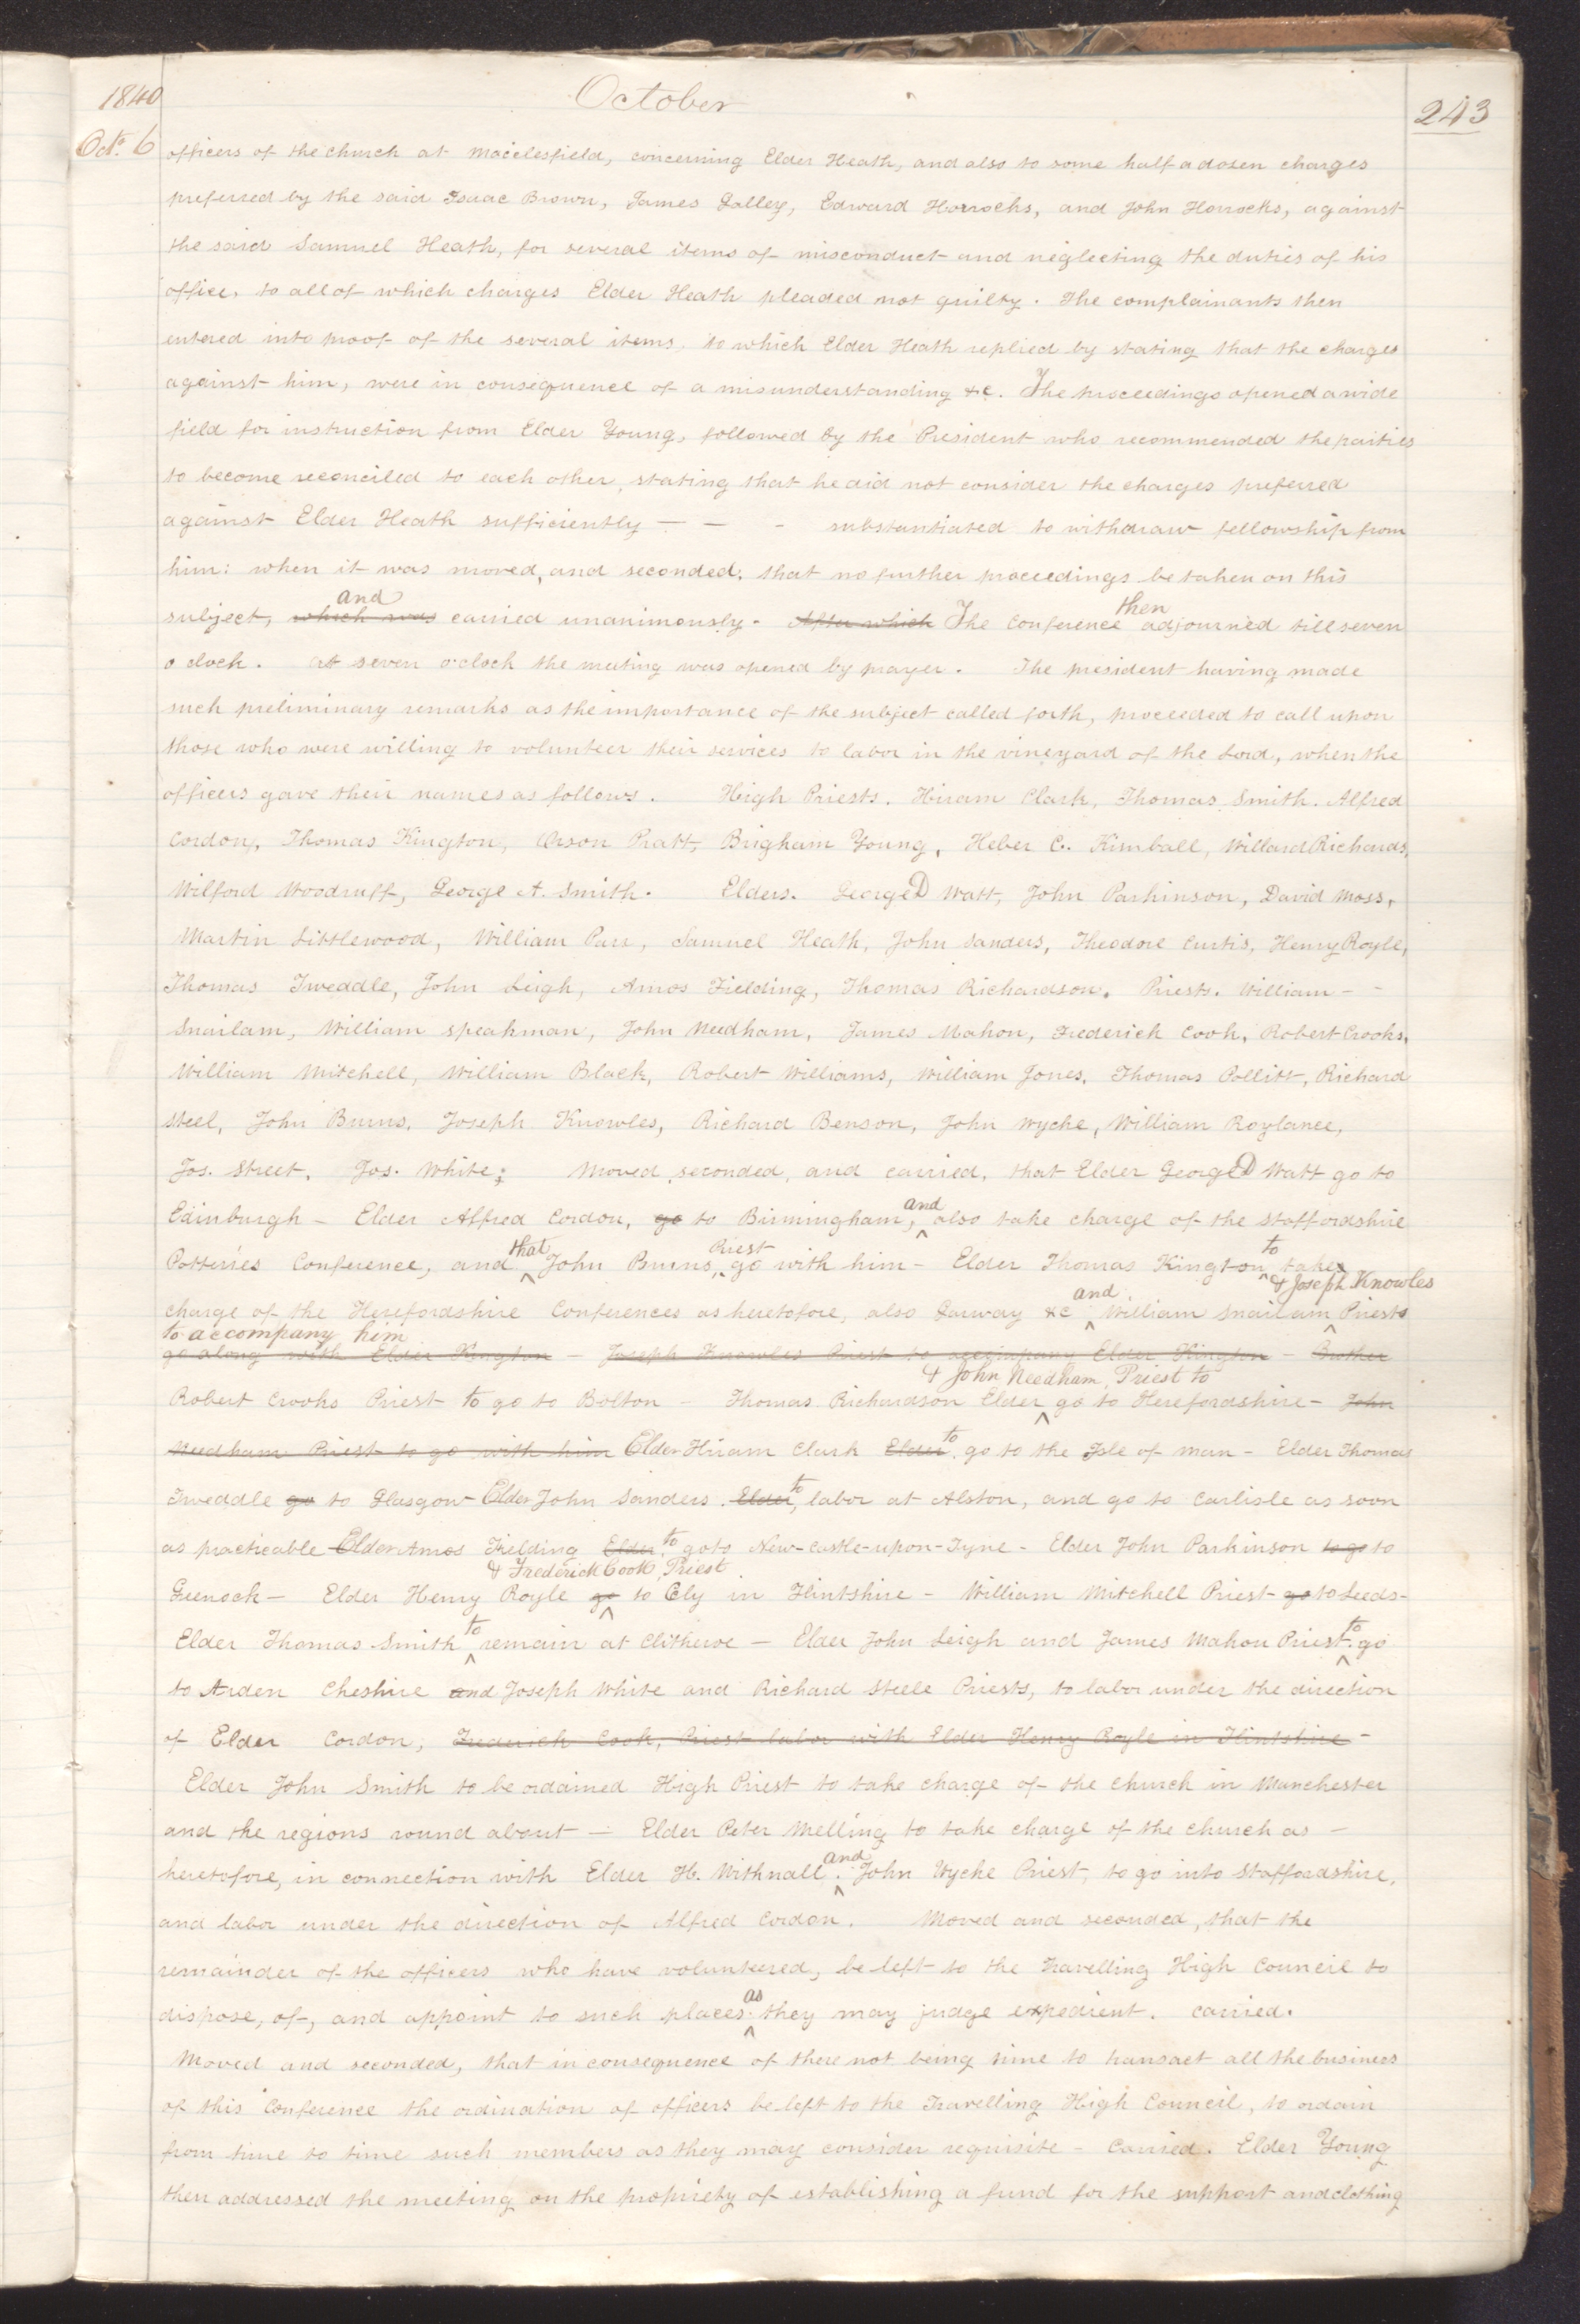 1840 October 243
Oct. 6 officers of the church at Macclesfield, concerning Elder Heath, and also to some half a dozen charges
preferred by the said Isaac Brown, James Galley, Edward Horrocks, and John Horrocks, against
the said Samuel Heath, for several items of misconduct and neglecting the duties of his
office, to all of which charges Elder Heath pleaded not guilty. The complainants then
entered into proof of the several items, to which Elder Heath replied by stating that the charges
against him, were in consequence of a misunderstanding &c. The proceedings opened a wide
field for instruction from Elder Young, followed by the President who recommended the parties
to become reconciled to each other, stating that he did not consider the charges preferred
against Elder Heath sufficiently — — - substantiated to withdraw fellowship from
him: when it was moved, and seconded, that no further proceedings be taken on this
and then
subject, which was carried unanimously. After which The conference adjourned till seven
o clock. At seven o'clock the meeting was opened by prayer. The president having made
such preliminary remarks as the importance of the subject called forth, proceeded to call upon
those who were willing to volunteer their services to labor in the vineyard of the Lord, when the
officers gave their names as follows. High Priests. Hiram Clark, Thomas Smith. Alfred
Cordon, Thomas Kington, Orson Pratt, Brigham Young, Heber C. Kimball, Willard Richards,
Wilford Woodruff, George A. Smith. Elders. George D Watt, John Parkinson, David Moss,
Martin Littlewood, William Parr, Samuel Heath, John Sanders, Theodore Curtis, Henry Royle,
Thomas Tweddle, John Leigh, Amos Fielding, Thomas Richardson. Priests. William - -
Snailam, William Speakman, John Needham, James Mahon, Frederick Cook, Robert Crooks,
William Mitchell, William Black, Robert Williams, William Jones, Thomas Pollitt, Richard
Steel, John Burns, Joseph Knowles, Richard Benson, John Wyche, William Roylance,
Jos. Street, Jos. White; Moved, seconded, and carried, that Elder George D Watt go to
and
Edinburgh - Elder Alfred Cordon, go to Birmingham, also take charge of the Staffordshire
that Priest to
Potteries Conference, and John Burns, go with him - Elder Thomas Kington takes
and & Joseph Knowles
charge of the Herefordshire Conferences as heretofore, also Garway &c William Snailam Priests
to accompany him
go along with Elder Kington - Joseph Knowles Priest to accompany Elder Kington - Brother
& John Needham, Priest to
Robert Crooks Priest to go to Bolton - Thomas Richardson Elder go to Herefordshire - John
to
Needham Priest to go with him Elder Hiram Clark Elder go to the Isle of Man - Elder Thomas
to
Tweddle go to Glasgow - Elder John Sanders. Elder, labor at Alston, and go to Carlisle as soon
to
as practicable - Elder Amos Fielding Elder go to New-castle-upon-Tyne - Elder John Parkinson to go to
& Frederick Cook, Priest
Greenock - Elder Henry Royle go to Cly in Flintshire - William Mitchell Priest - go to Leeds -
to to
Elder Thomas Smith remain at Clitheroe - Elder John Leigh and James Mahon Priest go
to Arden Cheshire and Joseph White and Richard Steele Priests, to labor under the direction
of Elder Cordon; Frederick Cook, Priest labor with Elder Henry Royle in Flintshire -
Elder John Smith to be ordained High Priest to take charge of the church in Manchester
and the regions round about - Elder Peter Melling to take charge of the church as -
and
heretofore, in connection with Elder H. Withnall. John Wyche Priest, to go into Staffordshire,
and labor under the direction of Alfred Cordon. Moved and seconded, that the
remainder of the officers who have volunteered, be left to the Travelling High Council to
as
dispose, of, and appoint to such places they may judge expedient. carried.
Moved and seconded, that in consequence of there not being time to transact all the business
of this Conference the ordination of officers be left to the Travelling High Council, to ordain
from time to time such members as they may consider requisite - Carried. Elder Young
then addressed the meeting on the propriety of establishing a fund for the support and clothing